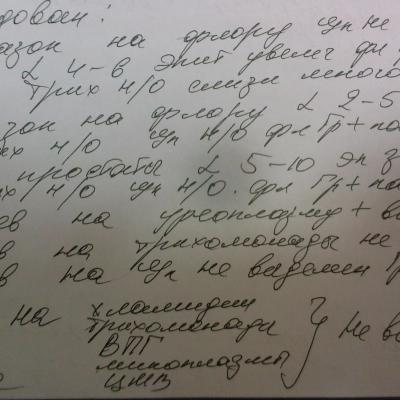 дован:
азок на флору гн не
L 4-в эпит увелич фл
трих н/о слизи много
зок на флору L 2-5
их н/о гн н/о фл Гр+ па
простаты L 5-10 эп
их н/о гн н/о. фл Гр+ па
ев на уреоплазму + в
в на трихомонады не
в на гн не выделен
на хламидии
трихомонада
ВПГ } не в
микоплазмы
ЦМВ